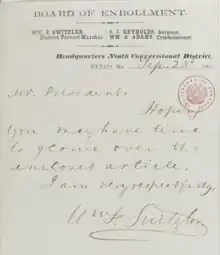 BOARD OF ENROLLMENT.
WM. F. SWITZLER,
District Provost Marshal.
S. J. REYNOLDS, Surgeon,
WM. S. ADAMS, Commissioner
Headquarters Ninth Congressional District,
Sep. 23 186
Mr. President:
Hope
you may have time
to glance over the
enclosed article.
I am very respectfully,
Wm F. Switzler